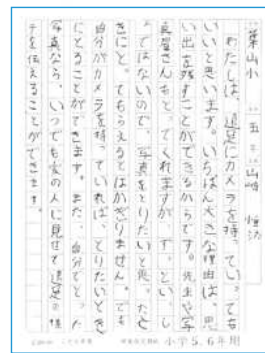 葉山小 五年 山崎 恒汰
わたしは、遠足にカメラを持っていっても
いいと思います。いちばん大きな理由は、思
い出を残すことができるからです。先生や写
真屋さんもとってくれますが、
ってはないので、写真をとりたいと思ったと
きにとってもらえるとはかぎりません。でも
自分がカメラを持っていれば、とりたいとき
にとることができます。また、自分でとった
写真なら、いつでも家の人に見せて遠足の様
子を伝えることができます。
小学5.6年用